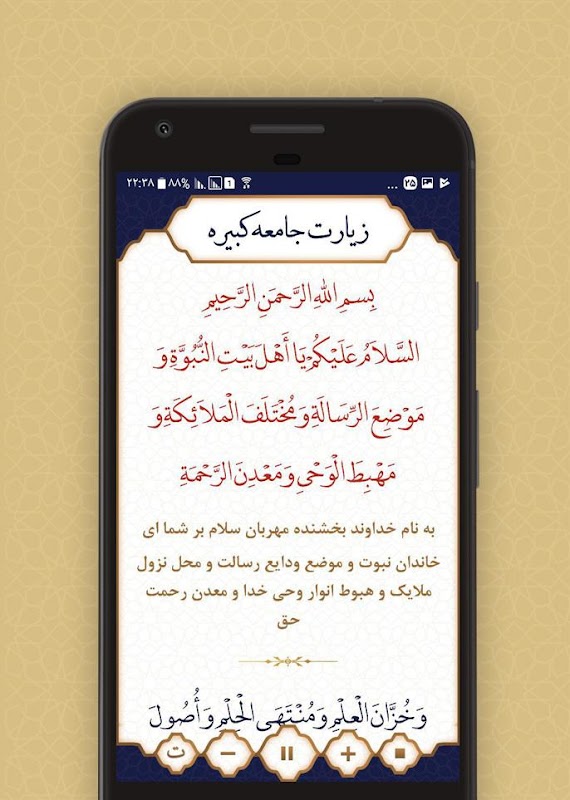 ۲۲:۳۸ ۸۸% 1 ... ۲۵
زیارت جامعه کبیره
بِسمِ اللهِ الرَّحمَنِ الرَّحِيمِ
السَّلَامُ عَلَيْكُمْ يَا أَهْلَ بَيْتِ النُّبُوَّةِ وَ
مَوْضِعَ الرِّسَالَةِ وَ مُخْتَلَفَ الْمَلَائِكَةِ وَ
مَهْبِطَ الْوَحْيِ وَ مَعْدِنَ الرَّحْمَةِ
به نام خداوند بخشنده مهربان سلام بر شما ای
خاندان نبوت و موضع ودایع رسالت و محل نزول
ملایک و هبوط انوار وحی خدا و معدن رحمت
حق
وَ خُزَّانَ الْعِلْمِ وَ مُنْتَهَى الْحِلْمِ وَ أُصُولَ
ت